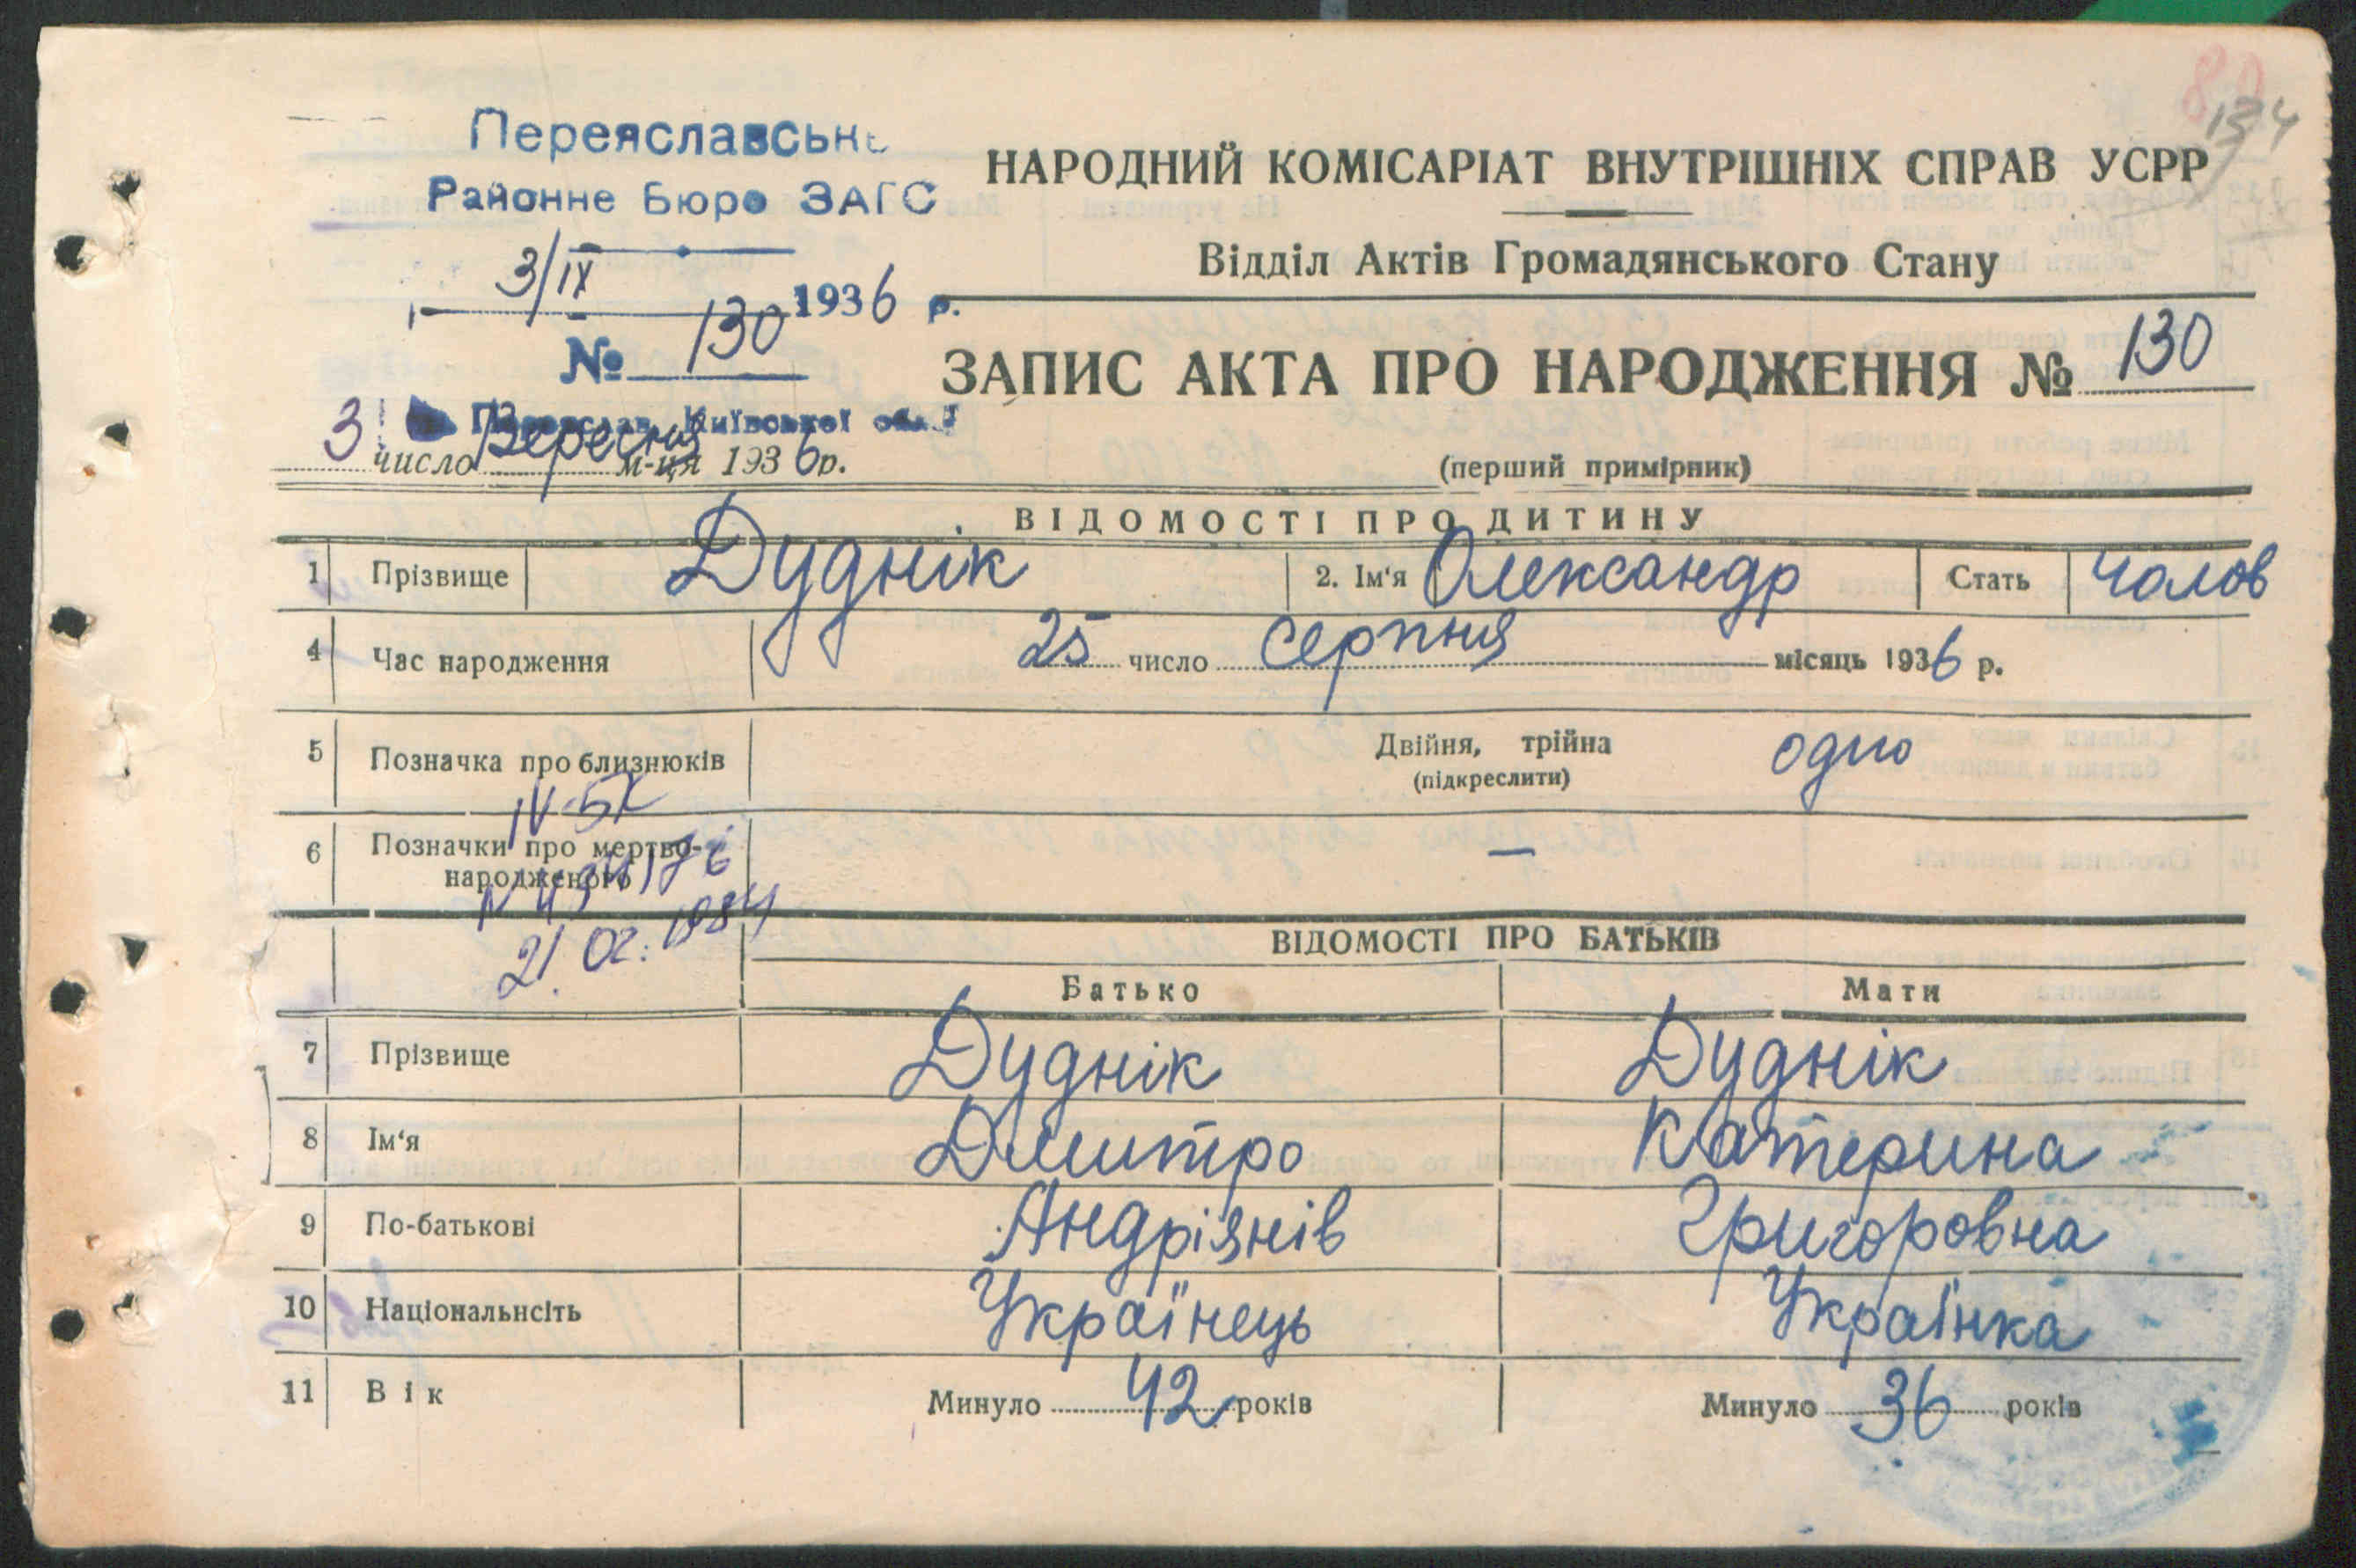 134
Переяславськ
Районне Бюро ЗАГС
3/IX 1936 р.
№ 130
Переяслав Київської обл.
3 число Вересня м-ця 1936 р.
НАРОДНИЙ КОМІСАРІАТ ВНУТРІШНІХ СПРАВ УСРР
Відділ Актів Громадянського Стану
ЗАПИС АКТА ПРО НАРОДЖЕННЯ № 130
(перший примірник)
ВІДОМОСТІ ПРО ДИТИНУ
1 Прізвище Дуднік 2. Ім'я Олександр Стать чолов
4 Час народження 25 число серпня місяць 1936 р.
5 Позначка про близнюків Двійня, трійна одно
(підкреслити)
6 Позначки про мертво- —
народженого
21.02.1984
ВІДОМОСТІ ПРО БАТЬКІВ
Батько Мати
7 Прізвище Дуднік Дуднік
8 Ім'я Дмитро Катерина
9 По-батькові Андріянів Григоровна
10 Національнсіть Українець Українка
11 Вік Минуло 42 років Минуло 36 років